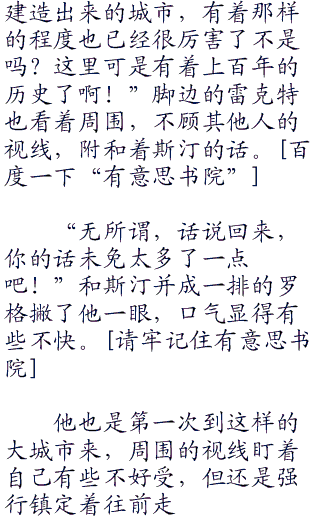 建造出来的城市，有着那样
的程度也已经很厉害了不是
吗？这里可是有着上百年的
历史了啊！”脚边的雷克特
也看着周围，不顾其他人的
视线，附和着斯汀的话。[百
度一下“有意思书院”]
“无所谓，话说回来，
你的话未免太多了一点
吧！”和斯汀并成一排的罗
格撇了他一眼，口气显得有
些不快。[请牢记住有意思书
院]
他也是第一次到这样的
大城市来，周围的视线盯着
自己有些不好受，但还是强
行镇定着往前走